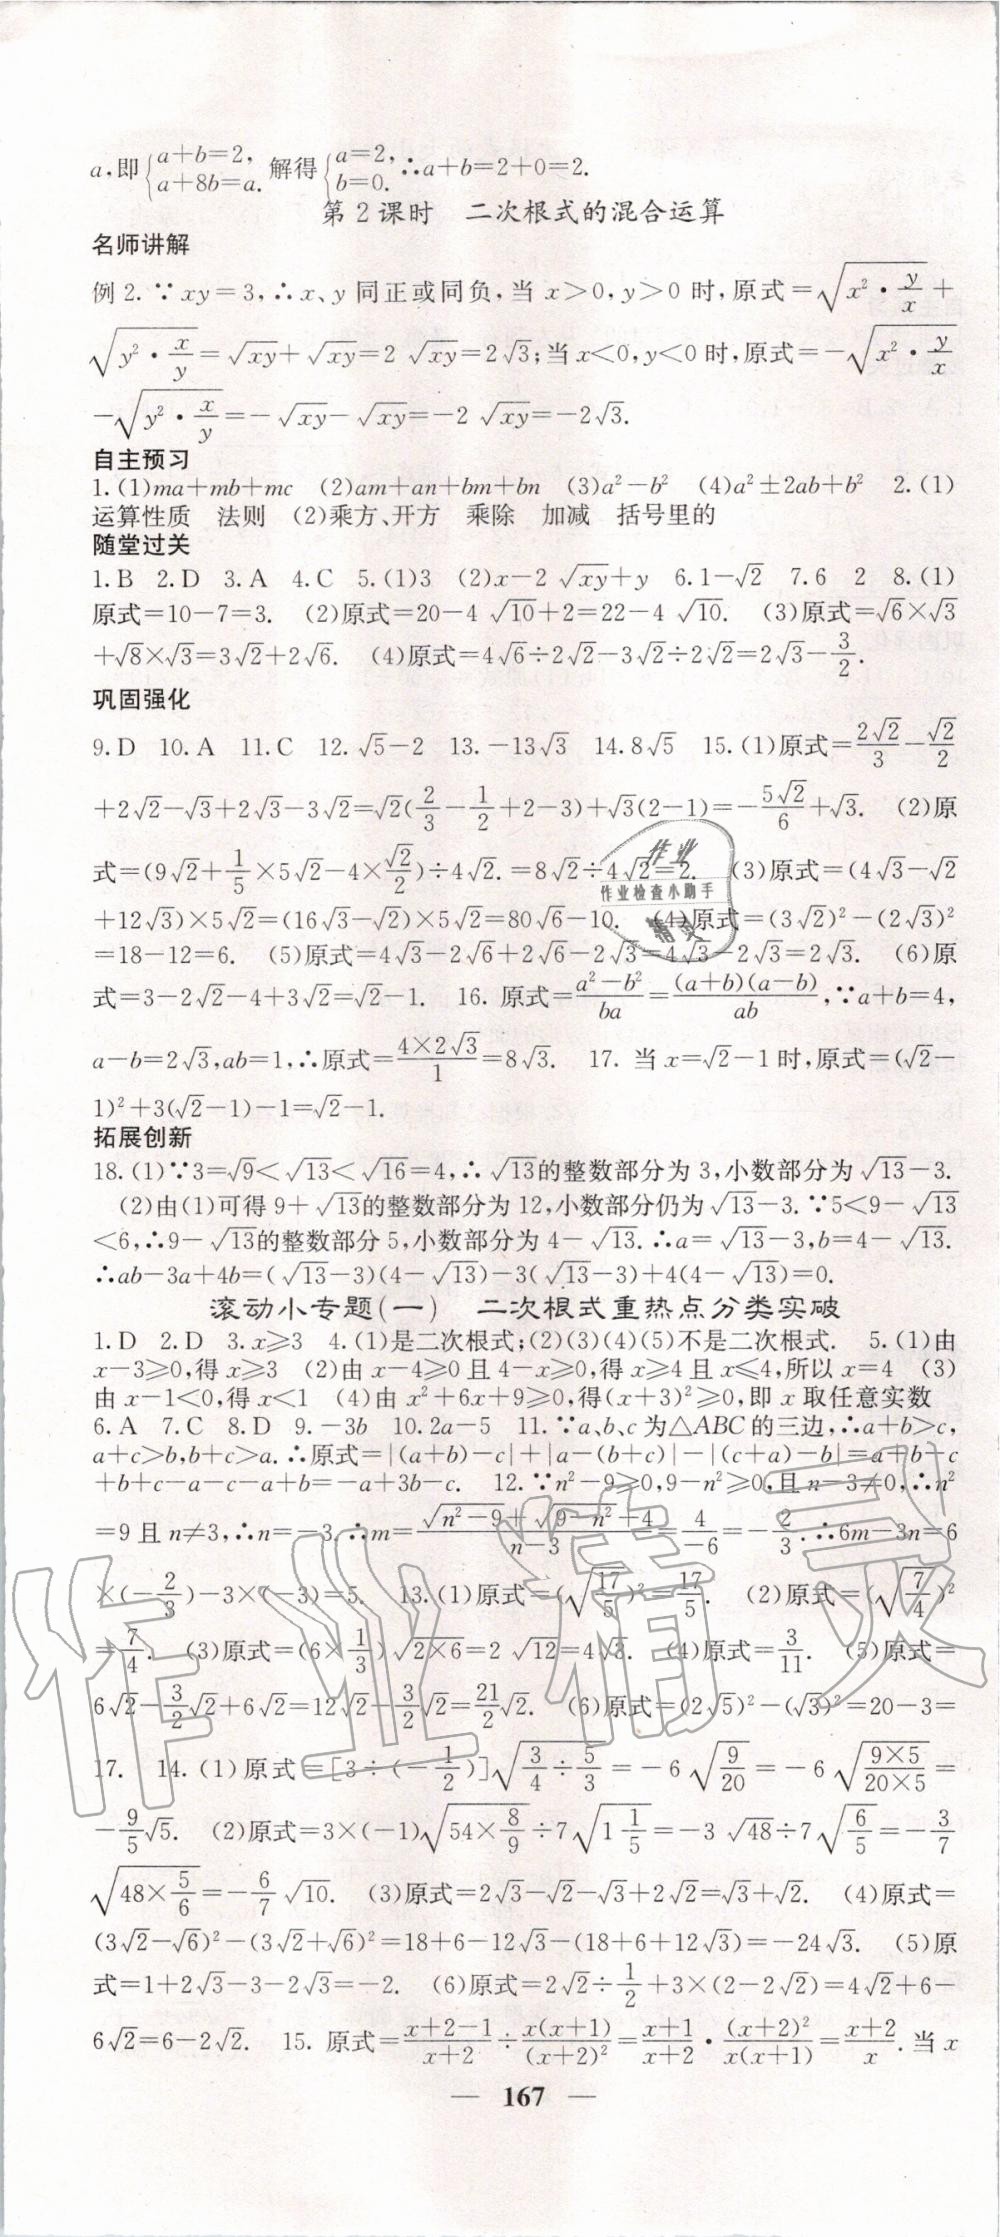 a,即{a+b=2, a+8b=a. 解得{a=2, b=0. ∴a+b=2+0=2.
第2课时 二次根式的混合运算
名师讲解
例2.∵xy=3,∴x、y同正或同负,当x>0,y>0时,原式=√(x²·y/x)+
√(y²·x/y)=√xy+√xy=2√xy=2√3;当x<0,y<0时,原式=-√(x²·y/x)
-√(y²·x/y)=-√xy-√xy=-2√xy=-2√3.
自主预习
1.(1)ma+mb+mc (2)am+an+bm+bn (3)a²-b² (4)a²±2ab+b² 2.(1)
运算性质 法则 (2)乘方、开方 乘除 加减 括号里的
随堂过关
1.B 2.D 3.A 4.C 5.(1)3 (2)x-2√xy+y 6.1-√2 7.6 2 8.(1)
原式=10-7=3. (2)原式=20-4√10+2=22-4√10. (3)原式=√6×√3
+√8×√3=3√2+2√6. (4)原式=4√6÷2√2-3√2÷2√2=2√3-3/2.
巩固强化
9.D 10.A 11.C 12.√5-2 13.-13√3 14.8√5 15.(1)原式=2√2/3-√2/2
+2√2-√3+2√3-3√2=√2(2/3-1/2+2-3)+√3(2-1)=-5√2/6+√3. (2)原
式=(9√2+1/5×5√2-4×√2/2)÷4√2.=8√2÷4√2=2. (3)原式=(4√3-√2
+12√3)×5√2=(16√3-√2)×5√2=80√6-10. (4)原式=(3√2)²-(2√3)²
=18-12=6. (5)原式=4√3-2√6+2√6-2√3=4√3-2√3=2√3. (6)原
式=3-2√2-4+3√2=√2-1. 16. 原式=(a²-b²)/ba=(a+b)(a-b)/ab,∵a+b=4,
a-b=2√3,ab=1,∴原式=4×2√3/1=8√3. 17. 当x=√2-1时,原式=(√2-
1)²+3(√2-1)-1=√2-1.
拓展创新
18.(1)∵3=√9<√13<√16=4,∴√13的整数部分为3,小数部分为√13-3.
(2)由(1)可得9+√13的整数部分为12,小数部分仍为√13-3.∵5<9-√13
<6,∴9-√13的整数部分5,小数部分为4-√13.∴a=√13-3,b=4-√13.
∴ab-3a+4b=(√13-3)(4-√13)-3(√13-3)+4(4-√13)=0.
滚动小专题(一) 二次根式重热点分类实破
1.D 2.D 3.x≥3 4.(1)是二次根式;(2)(3)(4)(5)不是二次根式. 5.(1)由
x-3≥0,得x≥3 (2)由x-4≥0且4-x≥0,得x≥4且x≤4,所以x=4 (3)
由x-1<0,得x<1 (4)由x²+6x+9≥0,得(x+3)²≥0,即x取任意实数
6.A 7.C 8.D 9.-3b 10.2a-5 11.∵a、b、c为△ABC的三边,∴a+b>c,
a+c>b,b+c>a.∴原式=|(a+b)-c|+|a-(b+c)|-|(c+a)-b|=a+b-c
+b+c-a-c-a+b=-a+3b-c. 12.∵n²-9≥0,9-n²≥0,且n-3≠0,∴n²
=9且n≠3,∴n=-3.∴m=(√(n²-9)+√(9-n²)+4)/(n-3)=4/-6=-2/3.∴6m-3n=6
×(-2/3)-3×(-3)=5. 13.(1)原式=(√(17/5))²=17/5. (2)原式=(√(7/4))²
=7/4. (3)原式=(6×1/3)√(2×6)=2√12=4√3. (4)原式=3/11. (5)原式=
6√2-3/2√2+6√2=12√2-3/2√2=21/2√2. (6)原式=(2√5)²-(√3)²=20-3=
17. 14.(1)原式=[3÷(-1/2)]√(3/4÷5/3)=-6√(9/20)=-6√(9×5/20×5)=
-9/5√5. (2)原式=3×(-1)√(54×8/9)÷7√(1 1/5)=-3√48÷7√(6/5)=-3/7
√(48×5/6)=-6/7√10. (3)原式=2√3-√2-√3+2√2=√3+√2. (4)原式=
(3√2-√6)²-(3√2+√6)²=18+6-12√3-(18+6+12√3)=-24√3. (5)原
式=1+2√3-3-2√3=-2. (6)原式=2√2÷1/2+3×(2-2√2)=4√2+6-
6√2=6-2√2. 15. 原式=(x+2-1)/(x+2)÷x(x+1)/(x+2)²=(x+1)/(x+2)·(x+2)²/x(x+1)=(x+2)/x.当x
— 167 —
作业
作业检查小助手
精灵
作业精灵